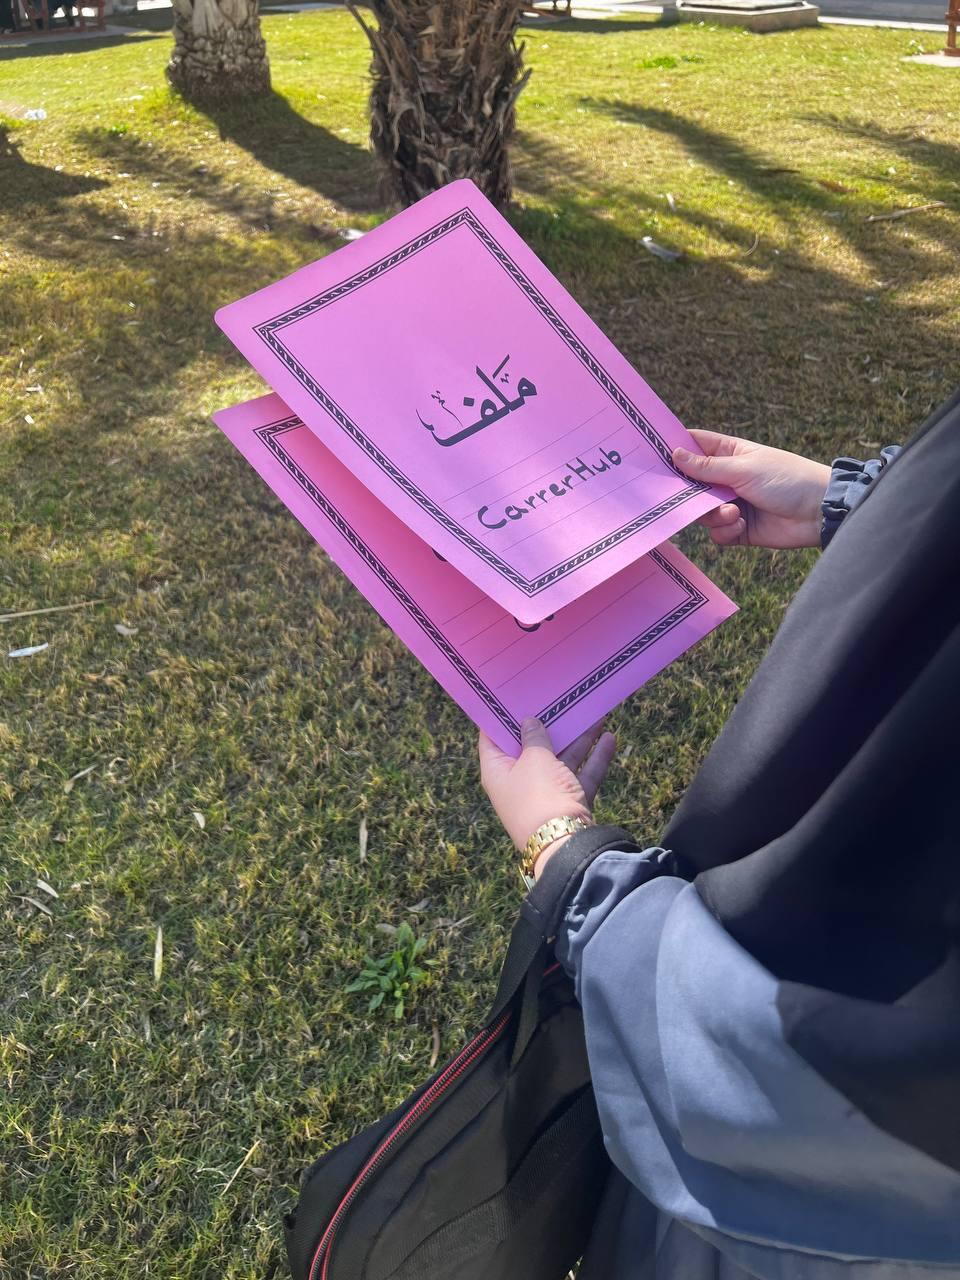 ملف
CarrerHub